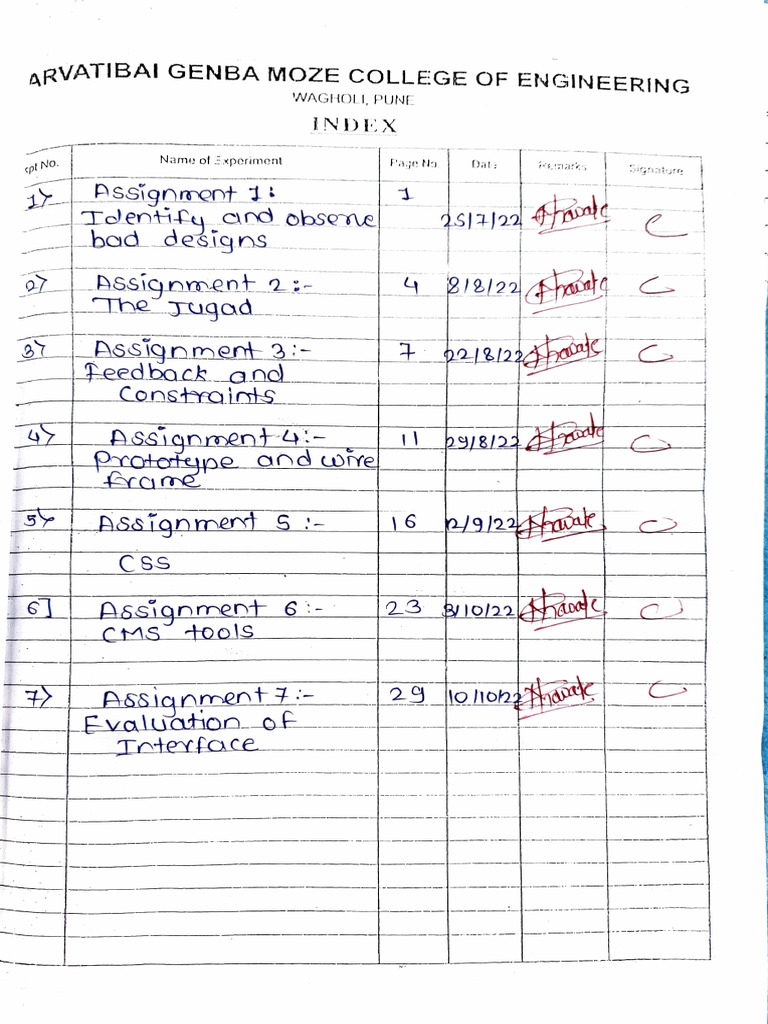 ARVATIBAI GENBA MOZE COLLEGE OF ENGINEERING
WAGHOLI, PUNE
INDEX
xpt No. Name of Experiment Page No Date Remarks Signature
1> Assignment 1: 1
Identify and observe 25/7/22
bad designs
2> Assignment 2:- 4 8/8/22
The Jugad
3> Assignment 3:- 7 22/8/22
Feedback and
Constraints
4> Assignment 4:- 11 29/8/22
Prototype and wire
frame
5> Assignment 5:- 16 12/9/22
CSS
6] Assignment 6:- 23 3/10/22
CMS tools
7> Assignment 7:- 29 10/10/22
Evaluation of
Interface